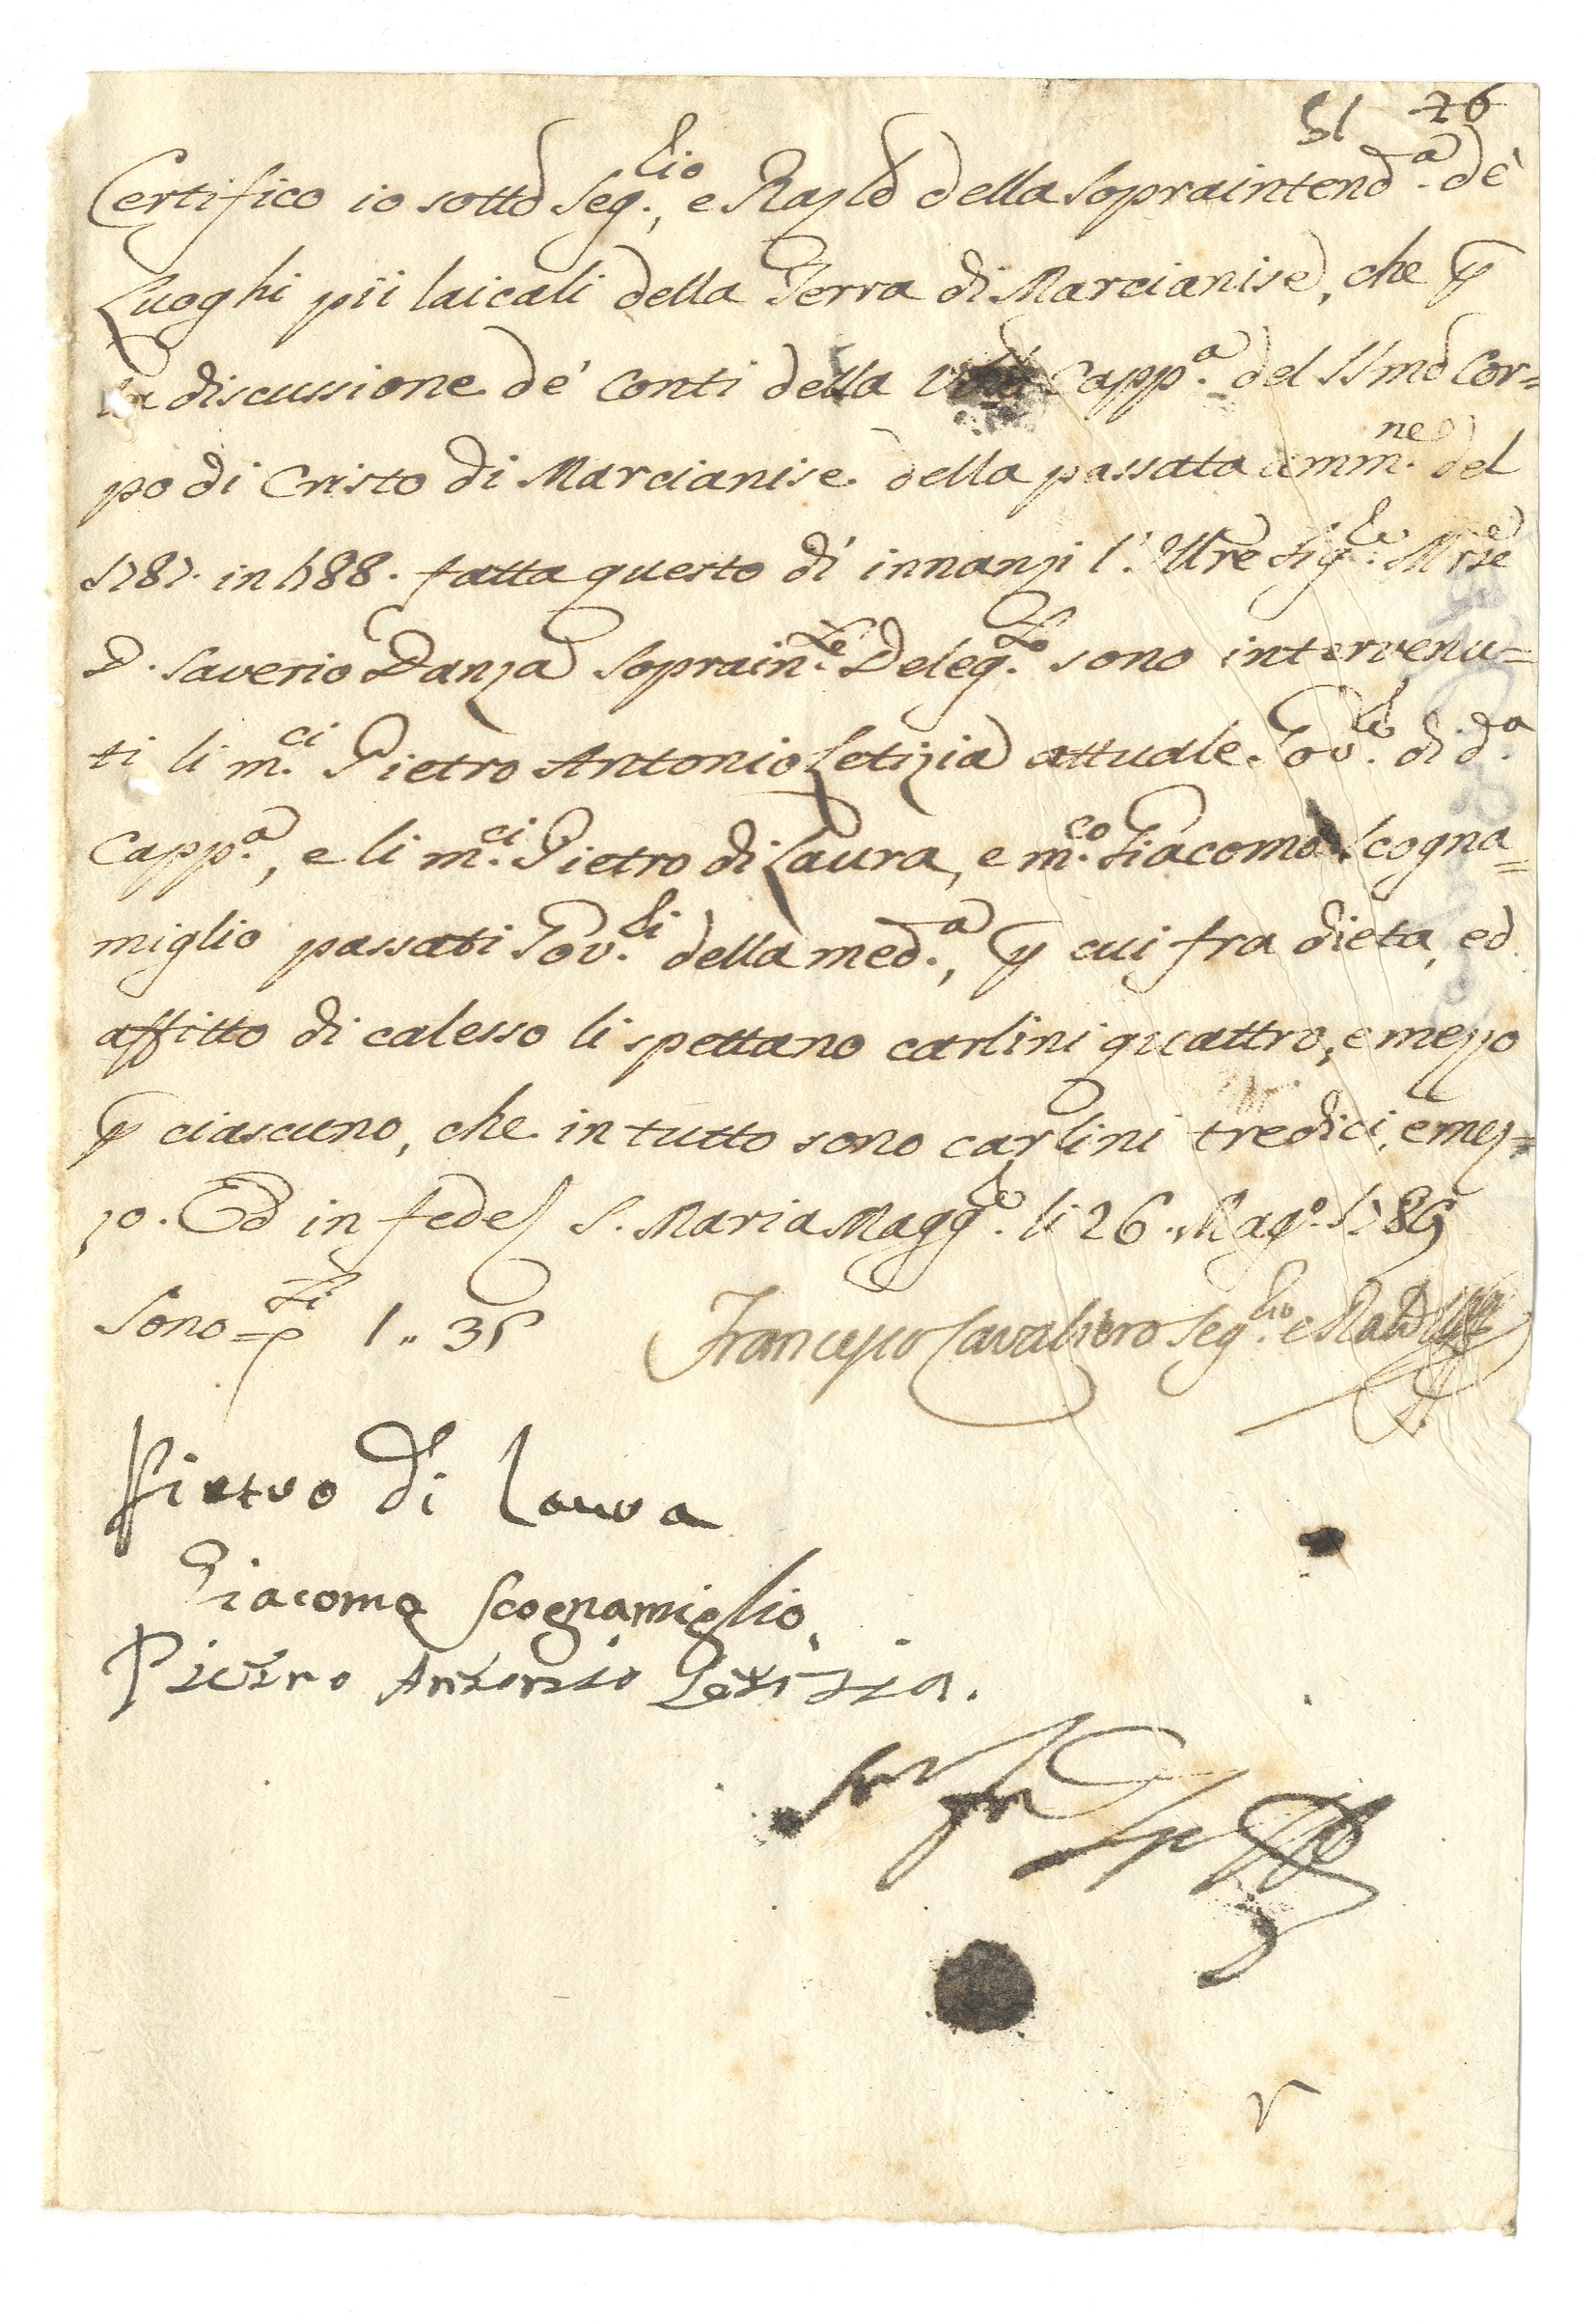 51 76
Certifico io sottо Seg.rio, e Raz.lo della Sopraintend.a de'
Luoghi pii laicali della Terra di Marcianise, che p
la discussione de' Conti della Capp.a del SSmo Cor=
po di Cristo di Marcianise della passata amm.ne del
1787. in 1788. fatta questo dì innanzi l'Ill.re Sig.re
D. Saverio Danza Soprain.te Deleg.to sono intervenu=
ti li m.ci Pietro Antonio Letizia attuale Gov.re di d.a
Capp.a, e li m.ci Pietro di Laura, e m.co Giacomo Scogna=
miglio passati Gov.ri della med.a, p cui fra dieta, ed
affitto di calesso li spettano carlini quattro, e mezzo
p ciascuno, che in tutto sono carlini tredici, e mez=
zo. Ed in fede S. Maria Magg.re li 26. Mag.o 1789
Sono = 1.. 35 Francesco Cavaliero Seg.rio e
Pietro di Laura
Giacomo Scognamiglio
Pietro Antonio Letizia.